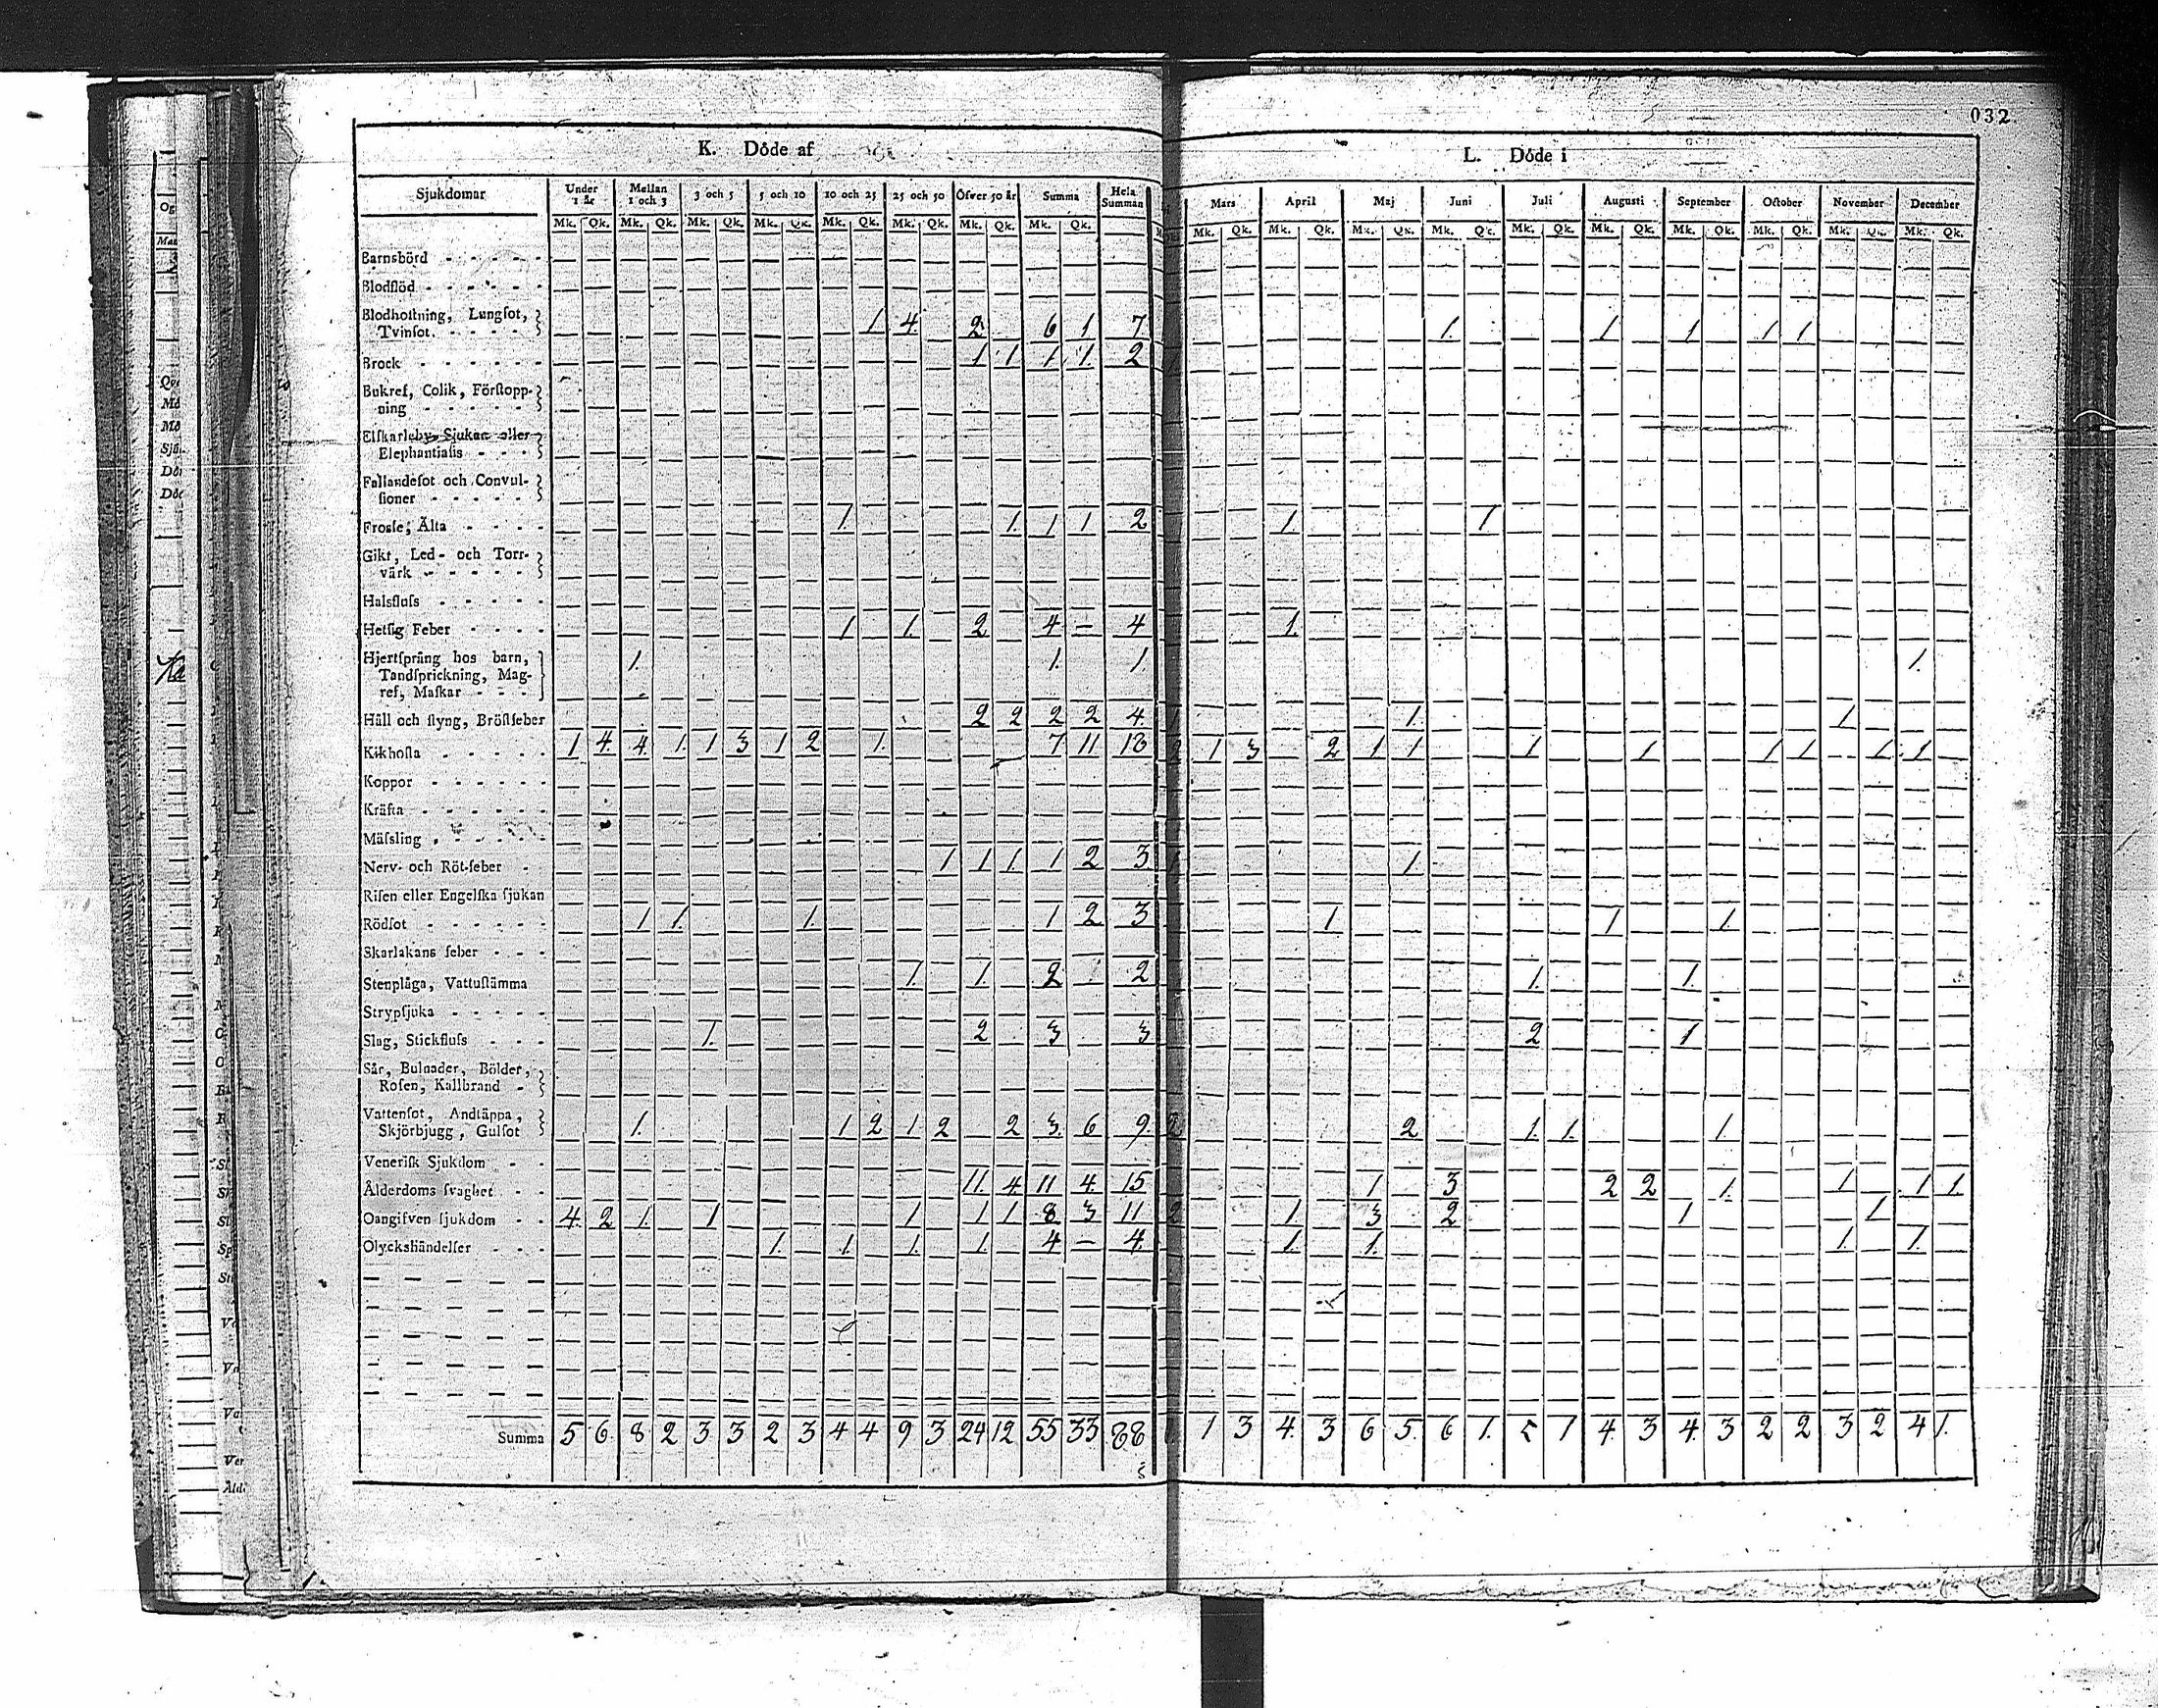 032
K. Döde af
L. Döde i
Sjukdomar Under 1 år Mellan 1 och 3 3 och 5 5 och 10 10 och 25 25 och 50 Öfver 50 år Summa Hela Summan
Mars April Maj Juni Juli Augusti September October November December
Mk. Qk. Mk. Qk. Mk. Qk. Mk. Qk. Mk. Qk. Mk. Qk. Mk. Qk. Mk. Qk.
Mk. Qk. Mk. Qk. Mk. Qk. Mk. Qk. Mk. Qk. Mk. Qk. Mk. Qk. Mk. Qk. Mk. Qk. Mk. Qk.
Barnsbörd
Blodflöd
Blodhostning, Lungsot,
Tvinsot. 1 4 2 6 1 7 1 1 1 1 1
Brock 1 1 1 1 2
Bukref, Colik, Förstopp-
ning
Elskarleby-Sjukan eller
Elephantiasis
Fallandesot och Convul-
sioner
Frossa, Älta 1 1 1 1 2 1 1
Gikt, Led- och Torr-
värk
Halsfluss
Hetsig Feber 1 1 2 4 — 4 1
Hjertsprång hos barn, 1 1 1 1
Tandsprickning, Mag-
ref, Maskar
Håll och styng, Bröstfeber 2 2 2 2 4 1 1
Kikhosta 1 4 4 1 1 3 1 2 1 7 11 18 1 3 2 1 1 1 1 1 1 1 1
Koppor
Kräfta
Mässling
Nerv- och Röt-feber 1 1 1 1 2 3 1
Risen eller Engelska sjukan
Rödsot 1 1 1 1 2 3 1 1 1
Skarlakans feber
Stenplåga, Vattustämma 1 1 2 2 1 1
Strypsjuka
Slag, Stickfluss 1 2 3 3 2 1
Sår, Bulnader, Bölder,
Rosen, Kallbrand
Vattensot, Andtäppa,
Skjörbjugg, Gulsot 1 1 2 1 2 2 3 6 9 2 2 1 1 1
Venerisk Sjukdom
Ålderdoms svaghet 11 4 11 4 15 1 3 2 2 1 1 1 1
Oangifven sjukdom 4 2 1 1 1 1 1 8 3 11 2 1 3 2 1 1
Olyckshändelser 1 1 1 1 4 — 4 1 1 1 1
Summa 5 6 8 2 3 3 2 3 4 4 9 3 24 12 55 33 88 1 3 4 3 6 5 6 1 5 1 4 3 4 3 2 2 3 2 4 1